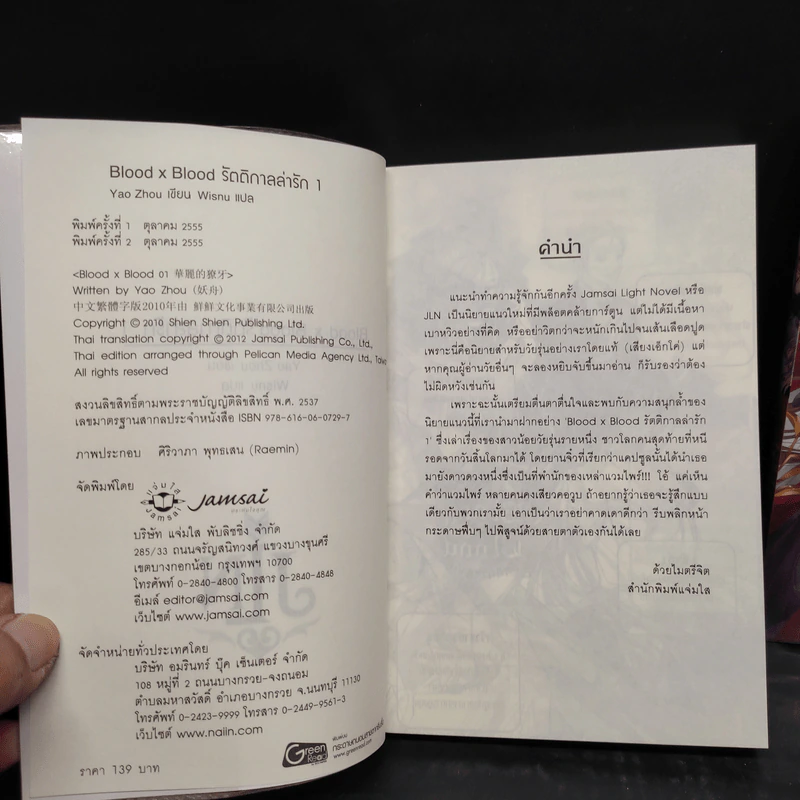 Blood x Blood รัตติกาลล่ารัก 1
Yao Zhou เขียน Wisnu แปล
พิมพ์ครั้งที่ 1 ตุลาคม 2555
พิมพ์ครั้งที่ 2 ตุลาคม 2555
<Blood x Blood 01 華麗的獠牙>
Written by Yao Zhou (妖舟)
中文繁體字版2010年由 鮮鮮文化事業有限公司出版
Copyright © 2010 Shien Shien Publishing Ltd.
Thai translation copyright © 2012 Jamsai Publishing Co., Ltd.,
Thai edition arranged through Pelican Media Agency Ltd.,
All rights reserved
สงวนลิขสิทธิ์ตามพระราชบัญญัติลิขสิทธิ์ พ.ศ. 2537
เลขมาตรฐานสากลประจำหนังสือ ISBN 978-616-06-0729-7
ภาพประกอบ ศิริวาภา พุทธเสน (Raemin)
จัดพิมพ์โดย
แจ่มใส
Jamsai
Jamsai
บริษัท แจ่มใส พับลิชชิ่ง จำกัด
285/33 ถนนจรัญสนิทวงศ์ แขวงบางขุนศรี
เขตบางกอกน้อย กรุงเทพฯ 10700
โทรศัพท์ 0-2840-4800 โทรสาร 0-2840-4848
อีเมล์ editor@jamsai.com
เว็บไซต์ www.jamsai.com
จัดจำหน่ายทั่วประเทศโดย
บริษัท อมรินทร์ บุ๊ค เซ็นเตอร์ จำกัด
108 หมู่ที่ 2 ถนนบางกรวย-จงถนอม
ตำบลมหาสวัสดิ์ อำเภอบางกรวย จ.นนทบุรี 11130
โทรศัพท์ 0-2423-9999 โทรสาร 0-2449-9561-3
เว็บไซต์ www.naiin.com
Green Read
พิมพ์บน
กระดาษถนอมสายตา
www.greenread.com
ราคา 139 บาท
คำนำ
แนะนำทำความรู้จักกันอีกครั้ง Jamsai Light Novel หรือ
JLN เป็นนิยายแนวใหม่ที่มีพล็อตคล้ายการ์ตูน แต่ไม่ได้มีเนื้อหา
เบาหวิวอย่างที่คิด หรืออย่าวิตกว่าจะหนักเกินไปจนเส้นเลือดปูด
เพราะนี่คือนิยายสำหรับวัยรุ่นอย่างเราโดยแท้ (เสียงเอ็กโค่) แต่
หากคุณผู้อ่านวัยอื่นๆ จะลองหยิบจับขึ้นมาอ่าน ก็รับรองว่าต้อง
ไม่ผิดหวังเช่นกัน
เพราะฉะนั้นเตรียมตื่นตาตื่นใจและพบกับความสนุกล้ำของ
นิยายแนวนี้ที่เรานำมาฝากอย่าง 'Blood x Blood รัตติกาลล่ารัก
1' ซึ่งเล่าเรื่องของสาวน้อยวัยรุ่นรายหนึ่ง ชาวโลกคนสุดท้ายที่หนี
รอดจากวันสิ้นโลกมาได้ โดยยานจิ๋วที่เรียกว่าแคปซูลนั้นได้นำเธอ
มายังดาวดวงหนึ่งซึ่งเป็นที่พำนักของเหล่าแวมไพร์!!! โอ้ แค่เห็น
คำว่าแวมไพร์ หลายคนคงเสียวคอวูบ ถ้าอยากรู้ว่าเธอจะรู้สึกแบบ
เดียวกับพวกเรามั้ย เอาเป็นว่าเราอย่าคาดเดาดีกว่า รีบพลิกหน้า
กระดาษพึ่บๆ ไปพิสูจน์ด้วยสายตาตัวเองกันได้เลย
ด้วยไมตรีจิต
สำนักพิมพ์แจ่มใส